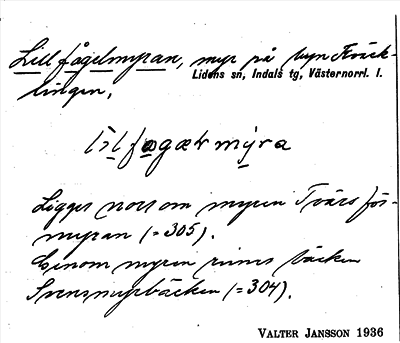 Lillfågelmyran, myr på byn Kväck-
Lidens sn, Indals tg, Västernorrl. l.
lingen,
Ligger norr om myren Tvärs för-
myran (=305).
Genom myren rinner bäcken
Svensmyrbäcken (=304).
VALTER JANSSON 1936